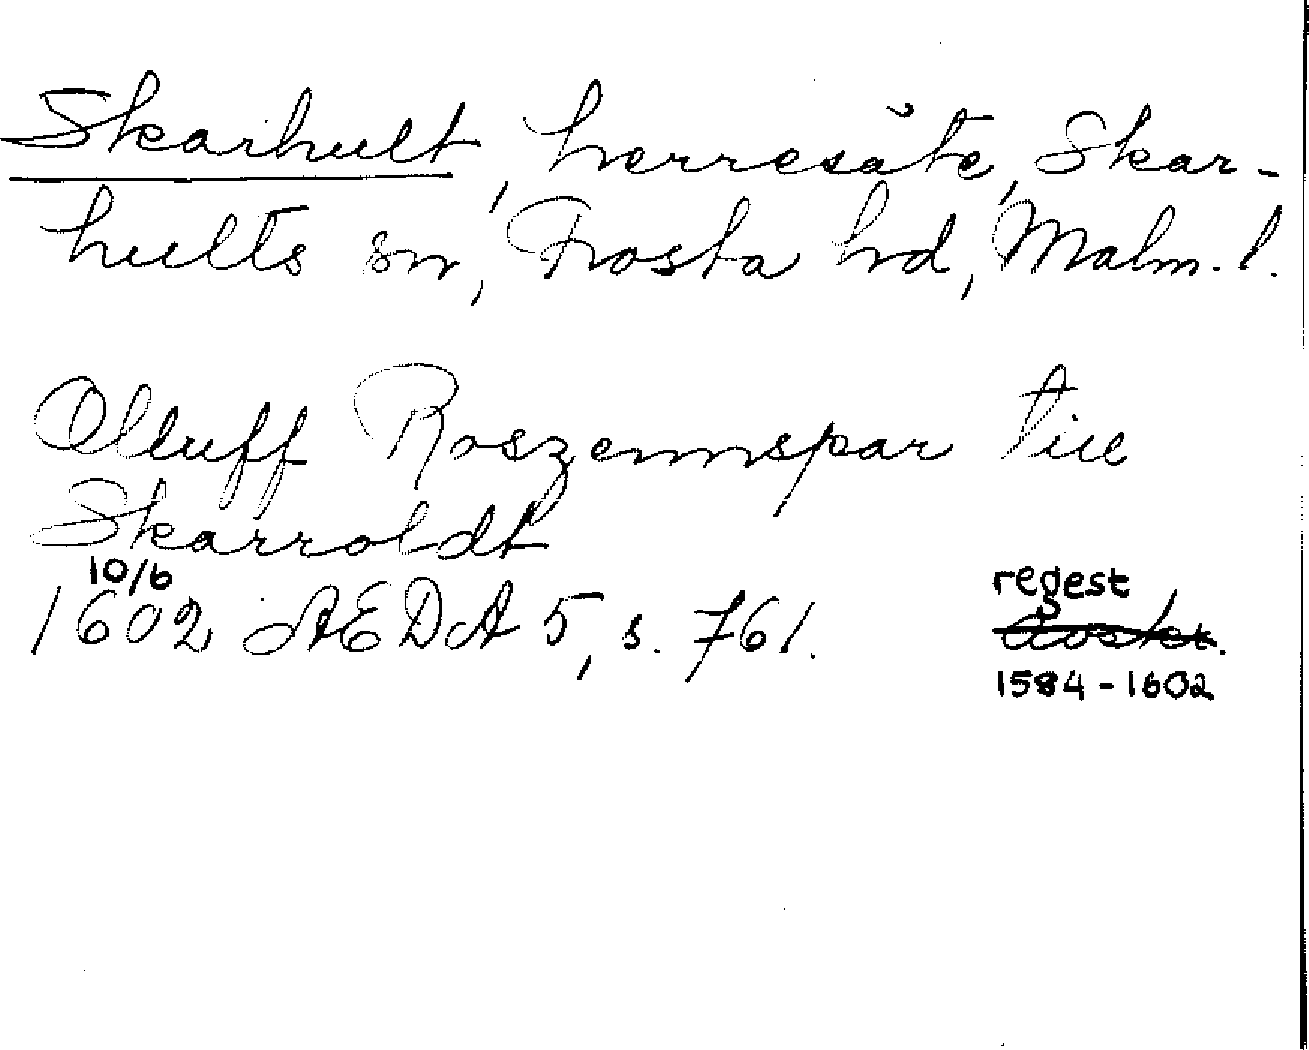 Skarhult, herresäte, Skar-
hults sn, Frosta hd, Malm. l.
Olluff Roszennspar till
Skarroldt
10/6
1602 ÆDA 5, s. 761.
regest
1584-1602